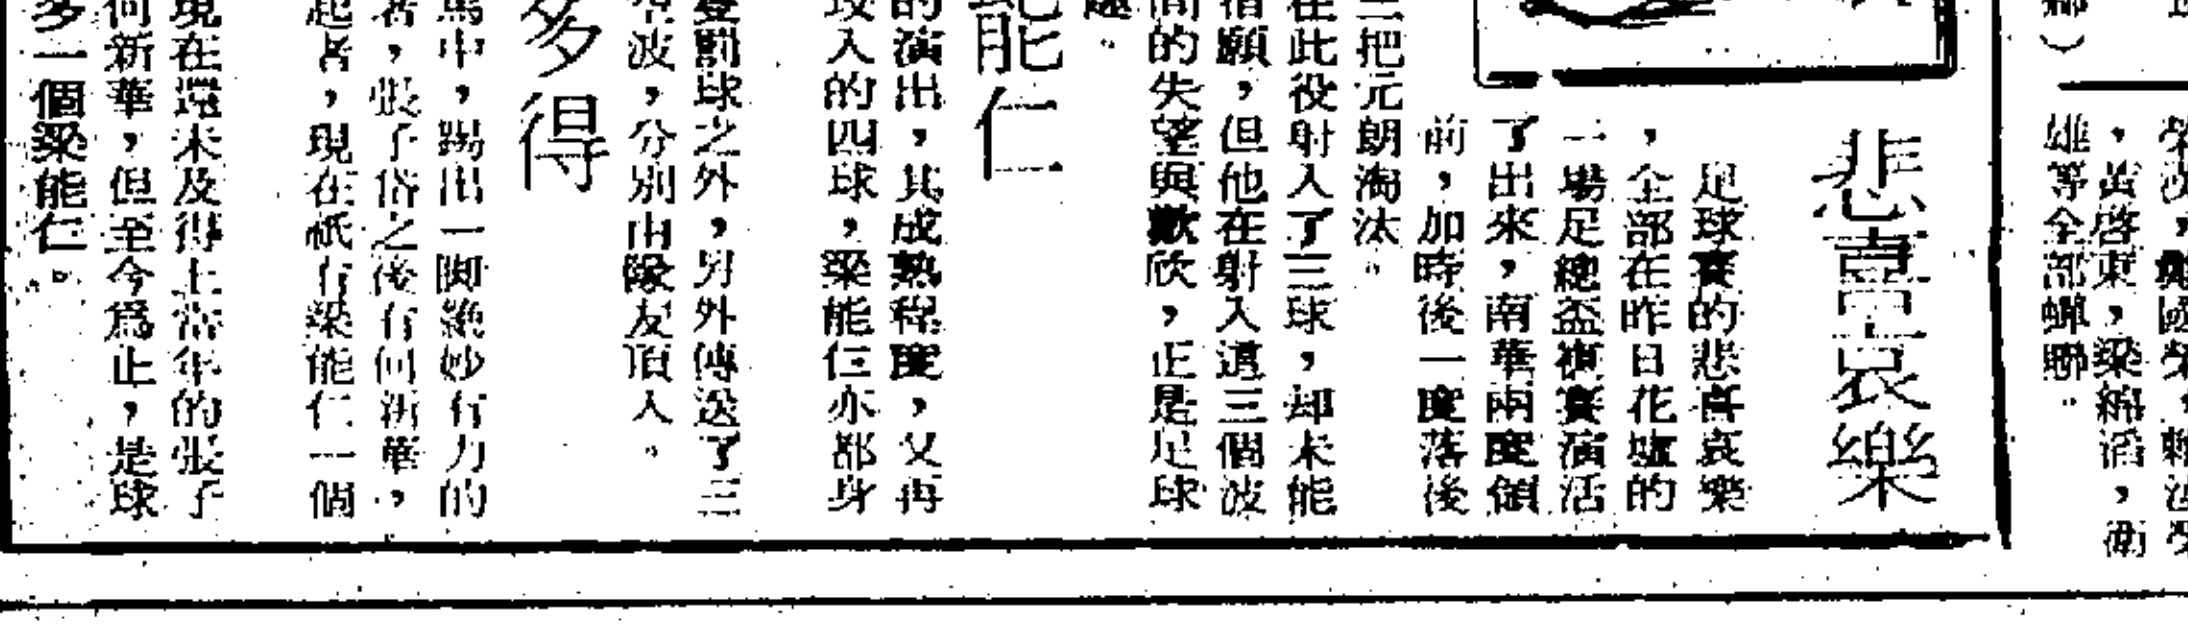 雄等全部蟬聯。
，黃啓東，梁錦滔，衛
悲喜哀樂
足球賽的悲喜哀樂
，全部在昨日花墟的
一場足總盃複賽演活
了出來，南華兩度領
前，加時後一度落後
三把元朗淘汰。
在此役射入了三球，却未能
願，但他在射入這三個波
間的失望與歡欣，正是足球
趣。
能仁
的演出，其成熟程度，又再
攻入的四球，梁能仁亦都身
多得
登罰球之外，另外傳送了三
波，分別由隊友頂入。
馬中，踢出一脚絕妙有力的
者，張子岱之後有何新華，
起者，現在祇有梁能仁一個
現在還未及得上當年的張子
何新華，但至今爲止，是球
多一個梁能仁。